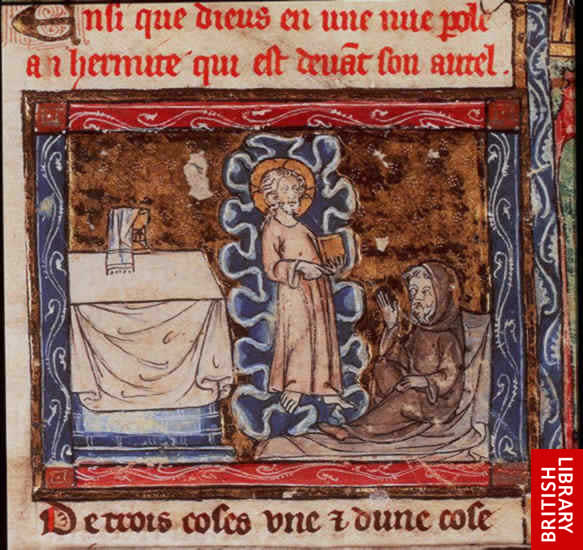 Ensi que dieus en une nue pole
a .i. hermite qui est devāt son autel.
De trois coses vne ⁊ dune cose
BRITISH
LIBRARY